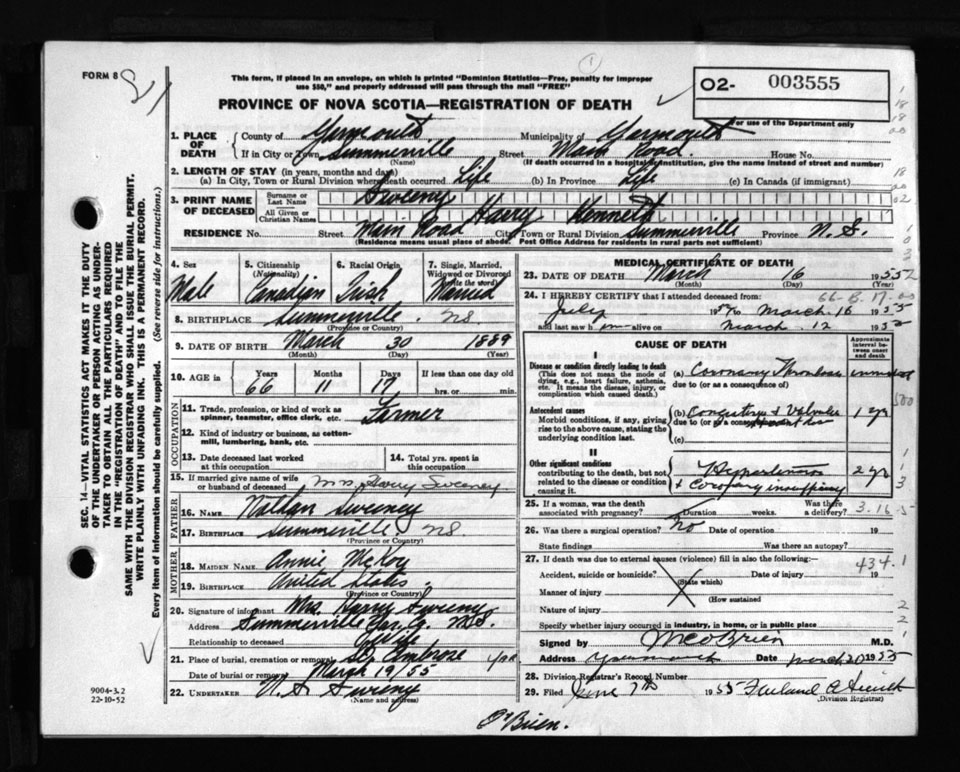 FORM 8
This form, if placed in an envelope, on which is printed "Dominion Statistics—Free, penalty for improper
use $50," and properly addressed will pass through the mail "FREE"
PROVINCE OF NOVA SCOTIA—REGISTRATION OF DEATH
02- 003555
For use of the Department only
1. PLACE OF DEATH County of Yarmouth Municipality of Yarmouth
If in City or Town Summerville Street Main Road. House No.
(Name) (If death occurred in a hospital or institution, give the name instead of street and number)
2. LENGTH OF STAY (in years, months and days)
(a) In City, Town or Rural Division where death occurred Life (b) In Province Life (c) In Canada (if immigrant)
3. PRINT NAME OF DECEASED Surname or Last Name Sweeny
All Given or Christian Names Harry Kenneth
RESIDENCE No. Street Main Road City, Town or Rural Division Summerville Province N. S.
(Residence means usual place of abode. Post Office Address for residents in rural parts not sufficient)
4. Sex Male
5. Citizenship (Nationality) Canadian
6. Racial Origin Irish
7. Single, Married, Widowed or Divorced (Write the word) Married
8. BIRTHPLACE Summerville. NS.
(Province or Country)
9. DATE OF BIRTH March 30 1889
(Month) (Day) (Year)
10. AGE in Years Months Days If less than one day old
66 11 17 hrs. or min.
OCCUPATION
11. Trade, profession, or kind of work as spinner, teamster, office clerk, etc. Farmer
12. Kind of industry or business, as cotton-mill, lumbering, bank, etc.
13. Date deceased last worked at this occupation
14. Total yrs. spent in this occupation
15. If married give name of wife or husband of deceased Mrs. Harry Sweeney
FATHER
16. Name Nathan Sweeney
17. Birthplace Summerville NS
(Province or Country)
MOTHER
18. MAIDEN NAME Annie McKoy
19. BIRTHPLACE United States.
(Province or Country)
20. Signature of informant Mrs. Harry Sweeny
Address Summerville Yar. Co. N.S.
Relationship to deceased Wife
21. Place of burial, cremation or removal St. Ambrose Yar
Date of burial or removal March 19/55
22. UNDERTAKER Sweeny
(Name and address)
MEDICAL CERTIFICATE OF DEATH
23. DATE OF DEATH March 16 1955
(Month) (Day) (Year)
66-B.17
24. I HEREBY CERTIFY that I attended deceased from:
July to March 16 1955
and last saw him alive on March 12 1955
CAUSE OF DEATH
Approximate interval between onset and death
I
Disease or condition directly leading to death
(This does not mean the mode of dying, e.g., heart failure, asthenia, etc. It means the disease, injury, or complication which caused death.)
(a) Coronary Thrombosis
due to (or as a consequence of)
Antecedent causes
Morbid conditions, if any, giving rise to the above cause, stating the underlying condition last.
(b) 1 yr
due to (or as a consequence of)
(c)
II
Other significant conditions
contributing to the death, but not related to the disease or condition causing it.
Hypertension 2 yr
+ Coronary insufficiency
25. If a woman, was the death associated with pregnancy? Duration weeks. Was there a delivery?
3.16.5
26. Was there a surgical operation? No Date of operation 19
State findings Was there an autopsy?
27. If death was due to external causes (violence) fill in also the following:—
434.1
Accident, suicide or homicide? Date of injury 19
(State which)
Manner of injury
(How sustained
Nature of injury
Specify whether injury occurred in industry, in home, or in public place
Signed by M C O'Brien M.D.
Address Yarmouth Date March 20 1955
28. Division Registrar's Record Number
29. Filed June 7th 1955
(Division Registrar)
O'Brien.
SEC. 14—VITAL STATISTICS ACT MAKES IT THE DUTY
OF THE UNDERTAKER OR PERSON ACTING AS UNDER-
TAKER TO OBTAIN ALL THE PARTICULARS REQUIRED
IN THE "REGISTRATION OF DEATH" AND TO FILE THE
SAME WITH THE DIVISION REGISTRAR WHO SHALL ISSUE THE BURIAL PERMIT.
WRITE PLAINLY WITH UNFADING INK. THIS IS A PERMANENT RECORD.
Every item of information should be carefully supplied. (See reverse side for instructions.)
9004-3.2
22-10-52